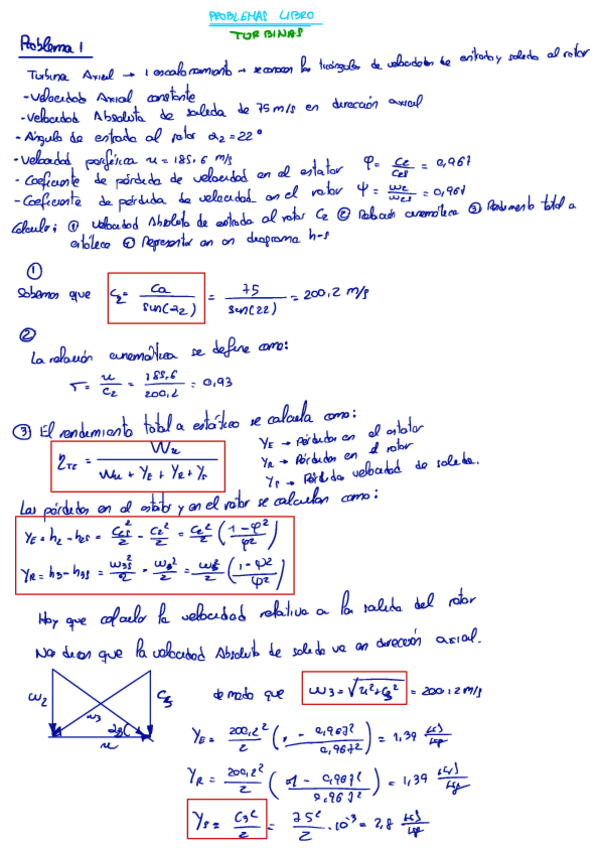 PROBLEMAS LIBRO
TURBINAS
Problema 1
Turbina Axial → 1 escalonamiento → se conocen los triángulos de velocidades de entrada y salida al rotor
- Velocidad Axial constante
- Velocidad Absoluta de salida de 75 m/s en dirección axial
- Ángulo de entrada al rotor α₂ = 22°
- Velocidad periférica u = 185,6 m/s
- Coeficiente de pérdida de velocidad en el estator φ = c₂/c₂s = 0,967
- Coeficiente de pérdida de velocidad en el rotor ψ = w₂/w₂s = 0,967
Calcular: ① Velocidad Absoluta de entrada al rotor C₂ ② Relación cinemática ③ Rendimiento total a
estático ④ Representar en un diagrama h-s
①
Sabemos que C₂ = Ca/sen(α₂) = 75/sen(22) = 200,2 m/s
②
La relación cinemática se define como:
r = u/c₂ = 185,6/200,2 = 0,93
③ El rendimiento total a estático se calcula como:
η_TE = Wu/(Wu + Y_E + Y_R + Y_s)
Y_E → Pérdidas en el estator
Y_R → Pérdidas en el rotor
Y_s → Pérdida velocidad de salida.
Las pérdidas en el estator y en el rotor se calculan como:
Y_E = h₂ - h₂s = C₂s²/2 - C₂²/2 = C₂²/2 (1-φ²/φ²)
Y_R = h₃ - h₃s = w₃s²/2 - w₃²/2 = w₃²/2 (1-ψ²/ψ²)
Hay que calcular la velocidad relativa a la salida del rotor
Nos dicen que la velocidad Absoluta de salida va en dirección axial.
w₂
w₃
C₃
u
de modo que w₃ = √(u²+c₃²) = 200,2 m/s
Y_E = 200,2²/2 (1 - 0,967²/0,967²) = 1,39 kJ/kg
Y_R = 200,2²/2 (1 - 0,967²/0,967²) = 1,39 kJ/kg
Y_s = C₃²/2 = 75²/2 · 10⁻³ = 2,8 kJ/kg